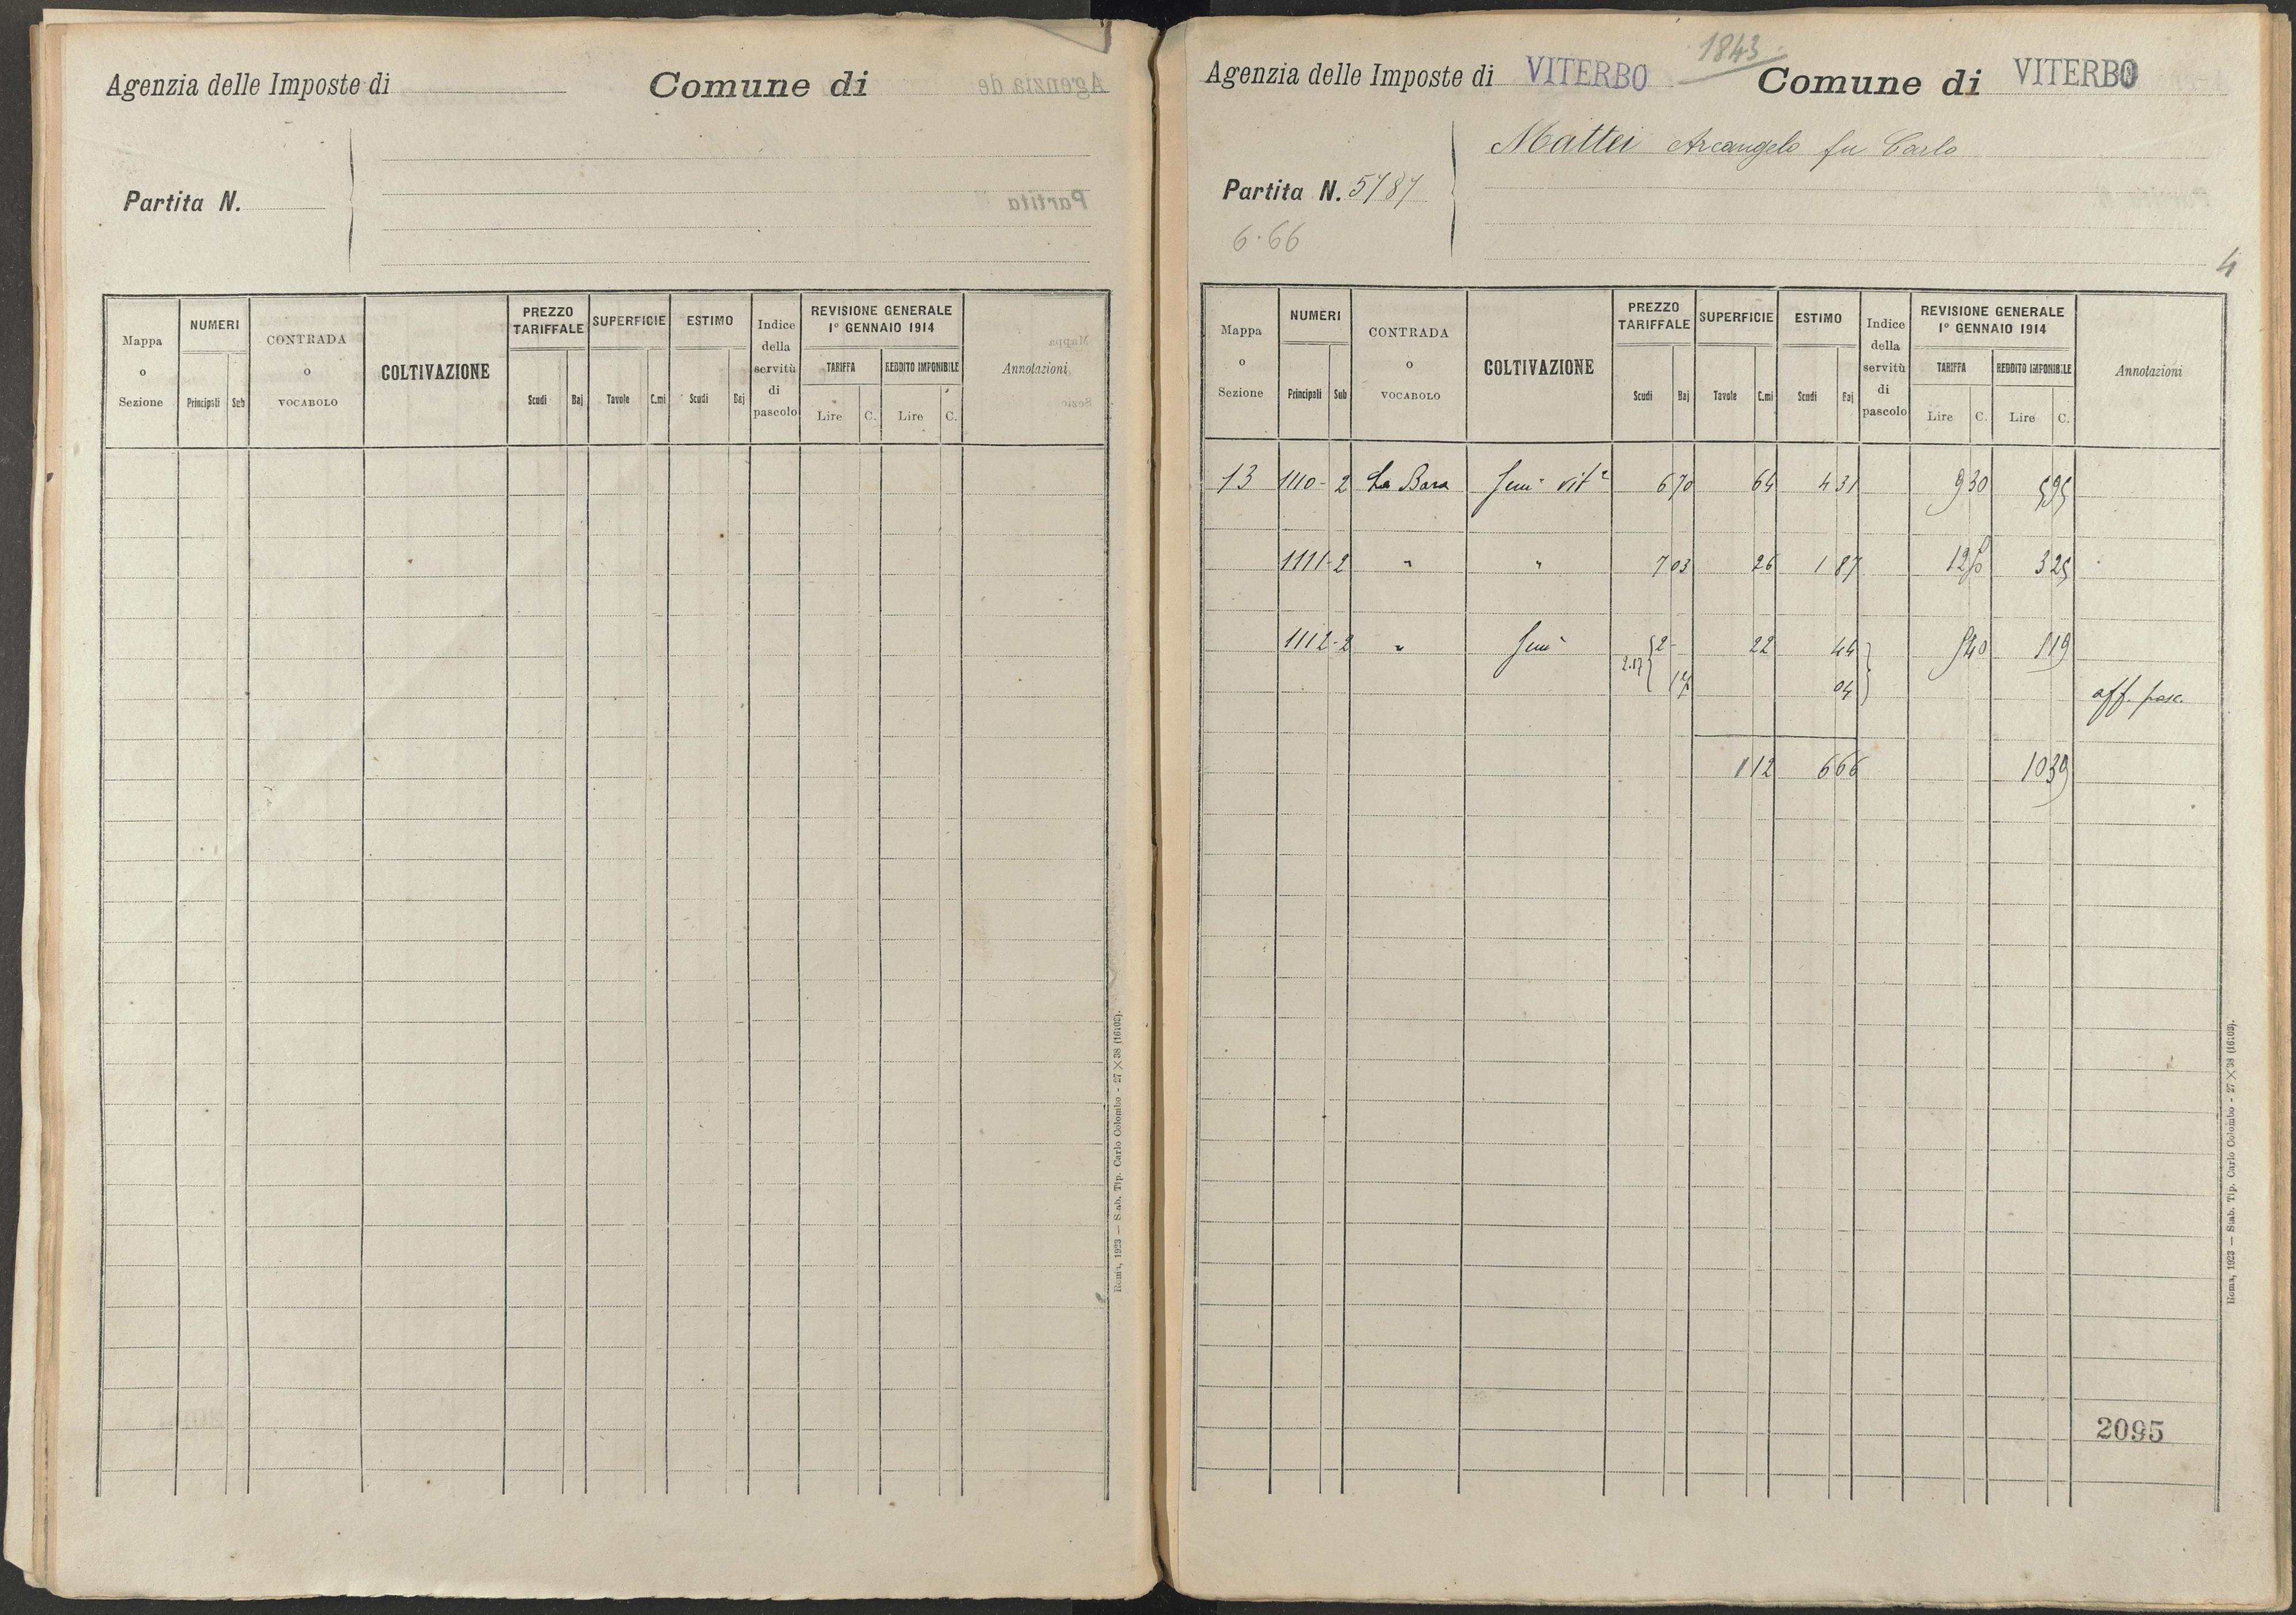 Agenzia delle Imposte di Comune di
Partita N.
Mappa o Sezione NUMERI Principali Sub CONTRADA o VOCABOLO COLTIVAZIONE PREZZO TARIFFALE Scudi Baj SUPERFICIE Tavole C.mi ESTIMO Scudi Baj Indice della servitù di pascolo REVISIONE GENERALE 1° GENNAIO 1914 TARIFFA Lire C. REDDITO IMPONIBILE Lire C. Annotazioni
Roma, 1923 — Stab. Tip. Carlo Colombo - 27 X 38 (16103).
1843
Agenzia delle Imposte di VITERBO Comune di VITERBO
Mattei Arcangelo fu Carlo
Partita N. 5787
6.66
4
Mappa o Sezione NUMERI Principali Sub CONTRADA o VOCABOLO COLTIVAZIONE PREZZO TARIFFALE Scudi Baj SUPERFICIE Tavole C.mi ESTIMO Scudi Baj Indice della servitù di pascolo REVISIONE GENERALE 1° GENNAIO 1914 TARIFFA Lire C. REDDITO IMPONIBILE Lire C. Annotazioni
13 1110-2 La Bara Sem° vit° 6 70 64 4 31 9 30 5 95
1111-2 " " 7 03 26 1 87 12 50 3 25
1112-2 " Sem° 2.17 2- 22 44 5 40 1 19
17 04 aff. pasc.
1 12 6 66 10 39
2095
Roma, 1923 — Stab. Tip. Carlo Colombo - 27 X 38 (16103).